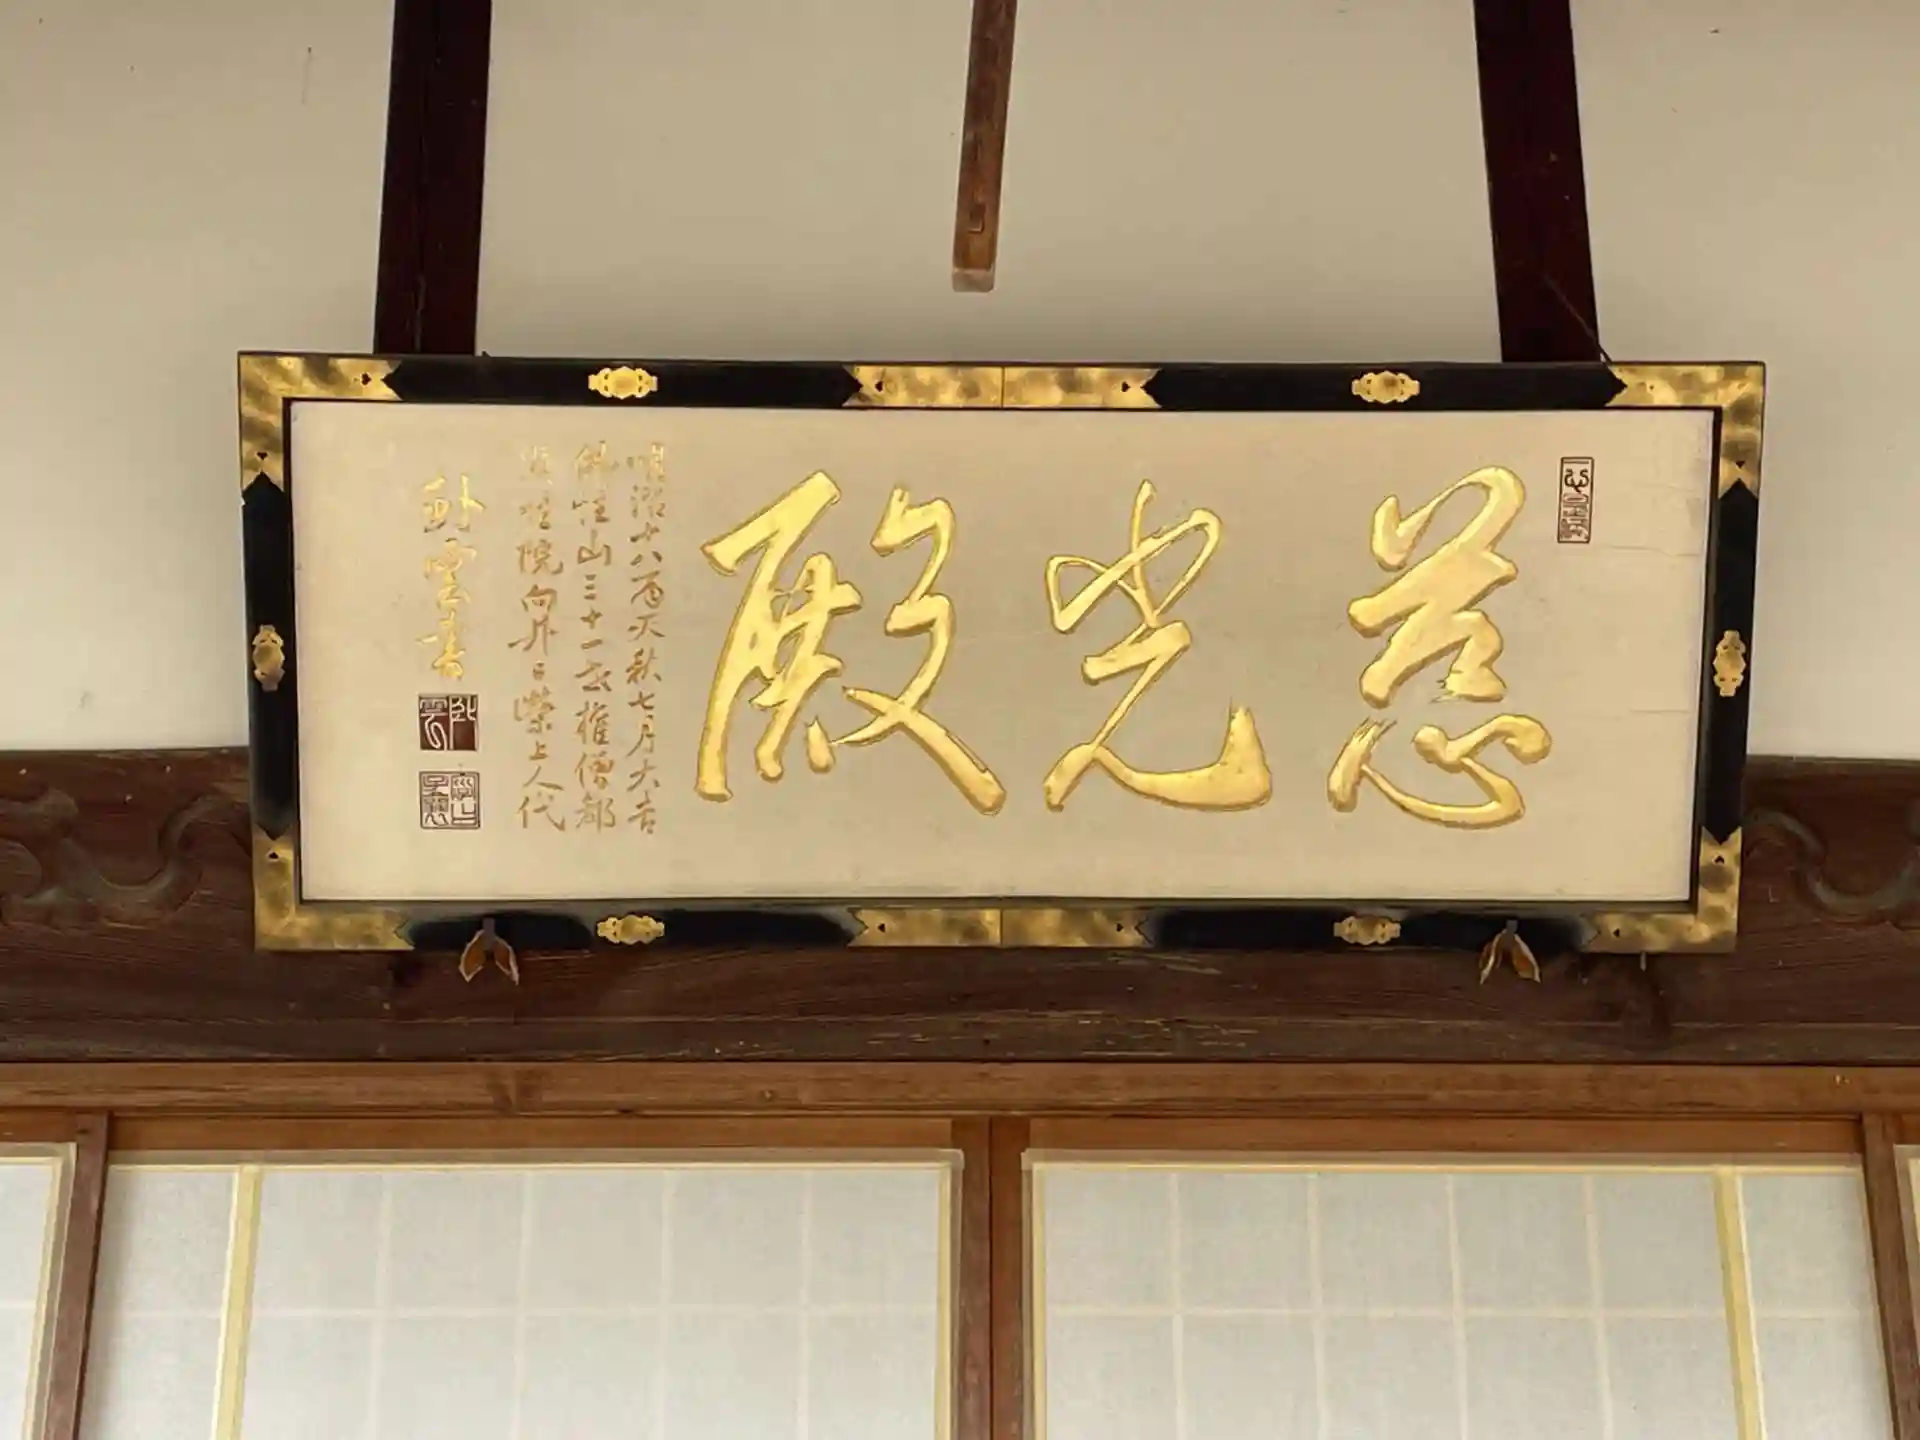 慈光殿
明治十八百天秋七月大吉
佛性山三十一世権僧都
院向外日榮上人代
卧雲書
卧雲